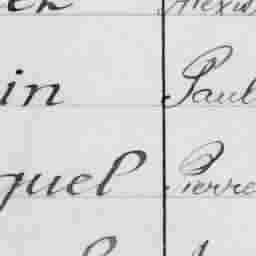 Alexis
in Paul
quel Pierre